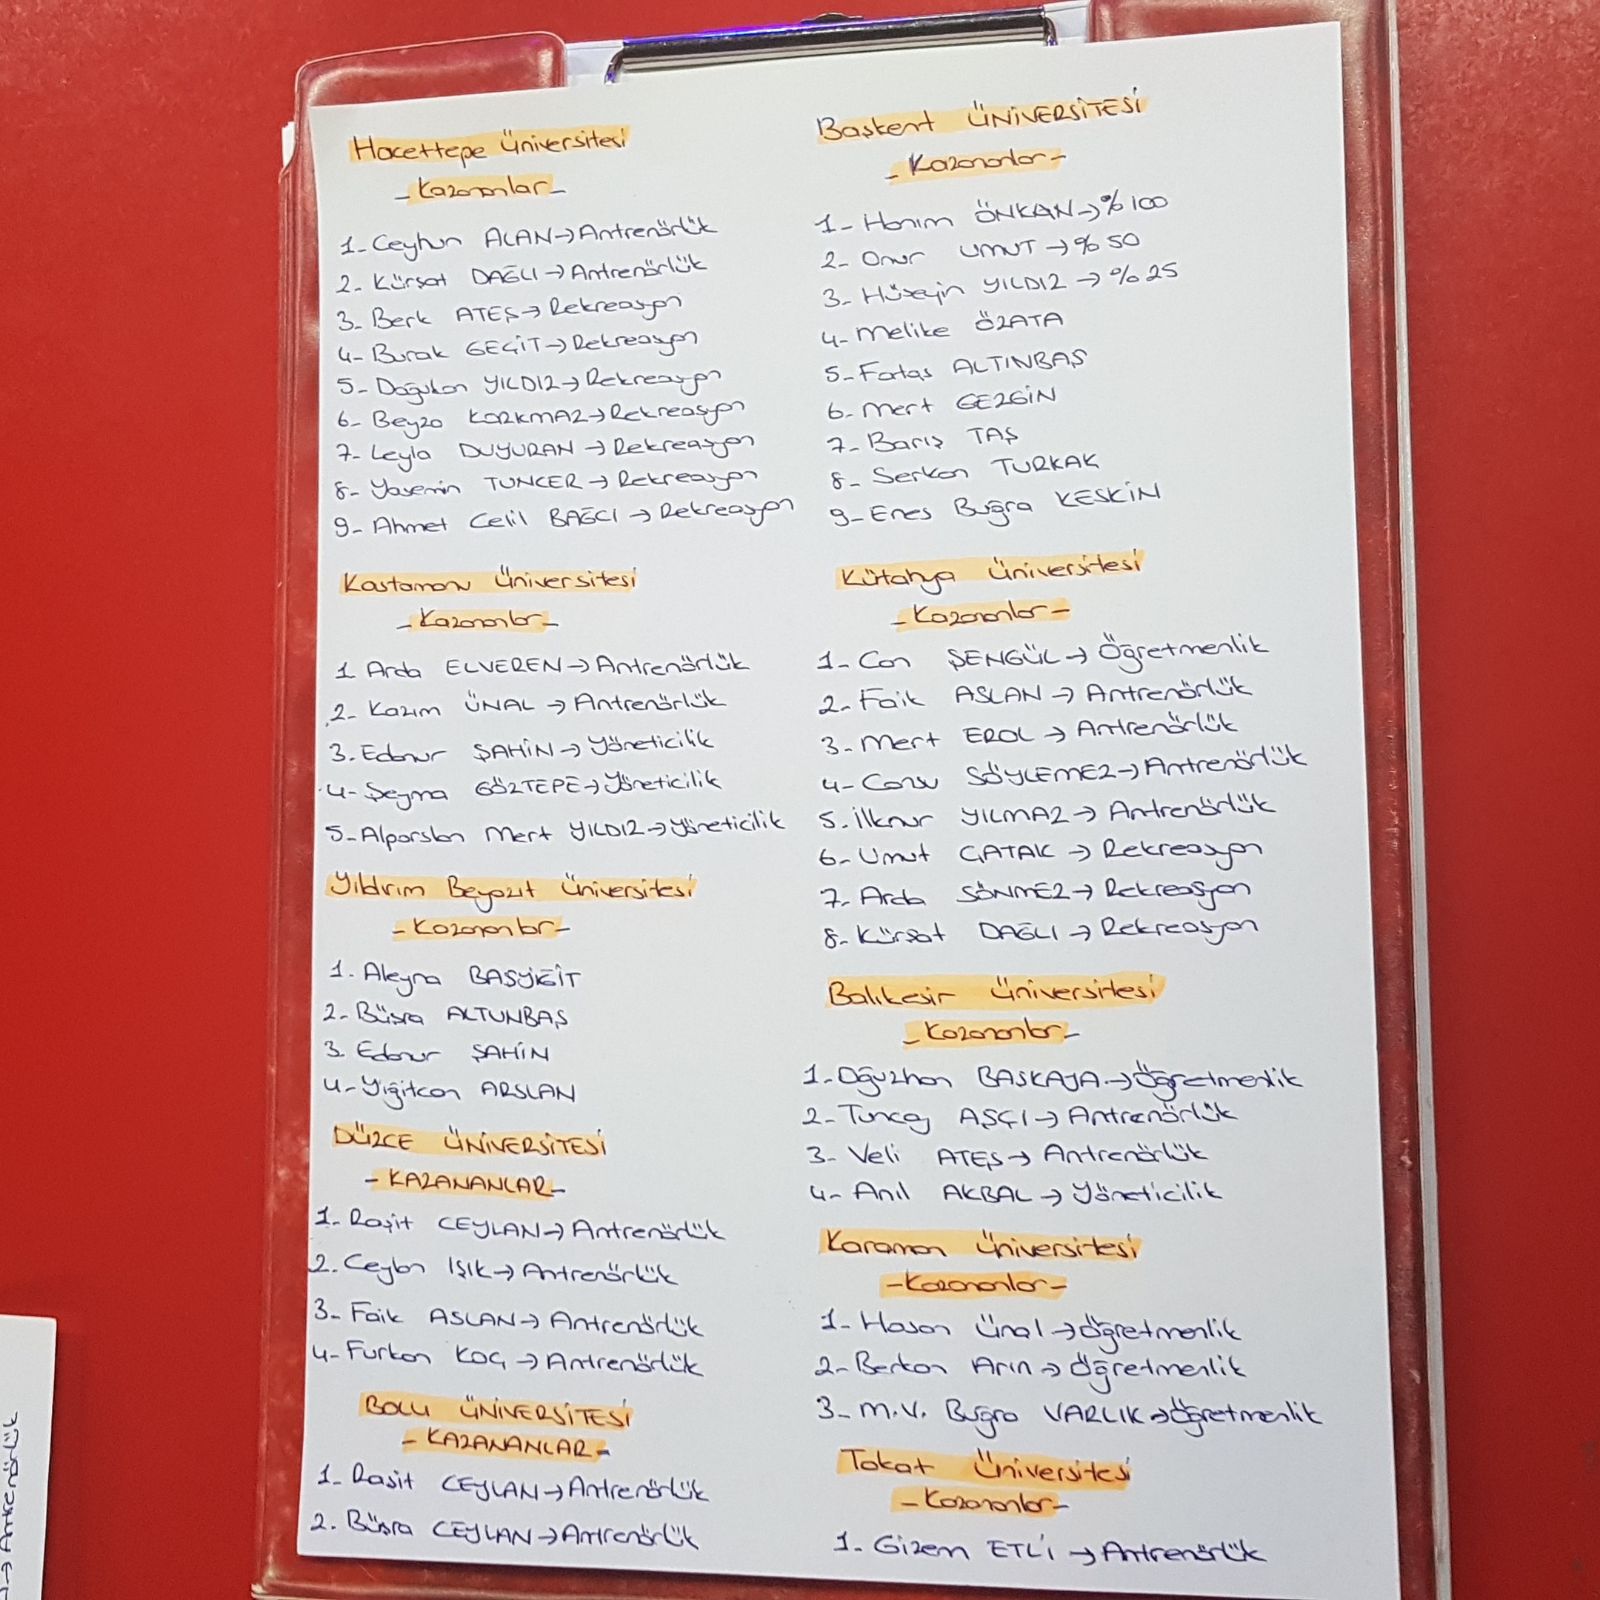 Hacettepe Üniversitesi
- Kazananlar -
1- Ceyhun ALAN → Antrenörlük
2- Kürşat DAĞLI → Antrenörlük
3- Berk ATEŞ → Rekreasyon
4- Burak GEÇİT → Rekreasyon
5- Doğukan YILDIZ → Rekreasyon
6- Beyza KORKMAZ → Rekreasyon
7- Leyla DUYURAN → Rekreasyon
8- Yasemin TUNCER → Rekreasyon
9- Ahmet Celil BAĞCI → Rekreasyon
Kastamonu Üniversitesi
- Kazananlar -
1 Arda ELVEREN → Antrenörlük
2- Kazım ÜNAL → Antrenörlük
3. Edanur ŞAHİN → Yöneticilik
4- Şeyma GÖZTEPE → Yöneticilik
5- Alparslan Mert YILDIZ → Yöneticilik
Yıldırım Beyazıt Üniversitesi
- Kazananlar -
1. Aleyna BAŞYİĞİT
2- Büşra ALTUNBAŞ
3. Edanur ŞAHİN
4- Yiğitcan ARSLAN
DÜZCE ÜNİVERSİTESİ
- KAZANANLAR -
1- Raşit CEYLAN → Antrenörlük
2. Ceylan IŞIK → Antrenörlük
3- Faik ASLAN → Antrenörlük
4- Furkan KOÇ → Antrenörlük
BOLU ÜNİVERSİTESİ
- KAZANANLAR -
1- Raşit CEYLAN → Antrenörlük
2. Büşra CEYLAN → Antrenörlük
Başkent ÜNİVERSİTESİ
- Kazananlar -
1- Hanım ÖNKAN → %100
2- Onur UMUT → %50
3- Hüseyin YILDIZ → %25
4- Melike ÖZATA
5- Fataş ALTINBAŞ
6- Mert GEZGİN
7- Barış TAŞ
8- Serkan TURKAK
9- Enes Buğra KESKİN
Kütahya Üniversitesi
- Kazananlar -
1- Can ŞENGÜL → Öğretmenlik
2- Faik ASLAN → Antrenörlük
3- Mert EROL → Antrenörlük
4- Cansu SÖYLEMEZ → Antrenörlük
5. İlknur YILMAZ → Antrenörlük
6- Umut ÇATAK → Rekreasyon
7- Arda SÖNMEZ → Rekreasyon
8- Kürşat DAĞLI → Rekreasyon
Balıkesir Üniversitesi
- Kazananlar -
1- Oğuzhan BAŞKAYA → Öğretmenlik
2- Tuncay AŞÇI → Antrenörlük
3- Veli ATEŞ → Antrenörlük
4- Anıl AKBAL → Yöneticilik
Karaman Üniversitesi
- Kazananlar -
1- Hasan Ünal → Öğretmenlik
2- Berkan Arın → Öğretmenlik
3- M.V. Buğra VARLIK → Öğretmenlik
Tokat Üniversitesi
- Kazananlar -
1- Gizem ETLİ → Antrenörlük
→ Antrenörlük